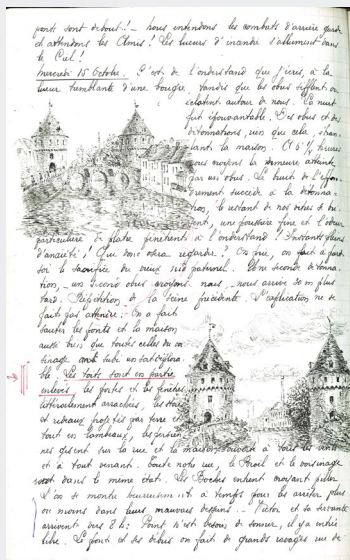 ponts sont debout!! — nous entendons les combats d'arrière garde
et attendons les Amis! Les lueurs d'incendie s'allument dans
le Ciel!
Mercredi 15 Octobre. C'est de l'understand que j'écris, à la
lueur tremblante d'une bougie, tandis que les obus sifflent on
éclatent autour de nous. La nuit
fut épouvantable. Des obus et des
détonations, rien que cela,
la maison. A 6 ½ heures
nous voyons la demeure atteinte
par un obus. Le bruit de l'effon-
drement succède à la détona-
tion, le restant de nos vitres se
une poussière fine et l'odeur
particulière de plâtre pénètrent à l'understand! Instants pleins
d'anxiété! Qui donc osera regarder? On prie, on fait à part
soi le sacrifice du vieux nid paternel. Une seconde détona-
tion, — un second obus croyons nous, — nous arrive de m plus
tard. Répétition de la scène précédente. L'explication ne se
fait pas attendre: On a fait
sauter les ponts et la maison
aussi bien que toutes celles du voi-
sinage ont subi un
Les toits sont en partie
enlevés, les portes et les fenêtres
littéralement arrachées, les stores
et rideaux projetés par terre et
tout en lambeaux,
nes gisent sur la rue et la maison ouverte à tous les vents
et à tout venant. Toute notre rue, le et le voisinage
sont dans le même état. Les Boches entrent croyant piller,
l'on se montre heureusement à temps pour les arrêter plus
ou moins dans leurs mauvais desseins. — Victor et sa servante
arrivent vers 8 h: Point n'est besoin de sonner, il y a entrée
libre. Le pont et ses débris on fait de grands ravages rue de